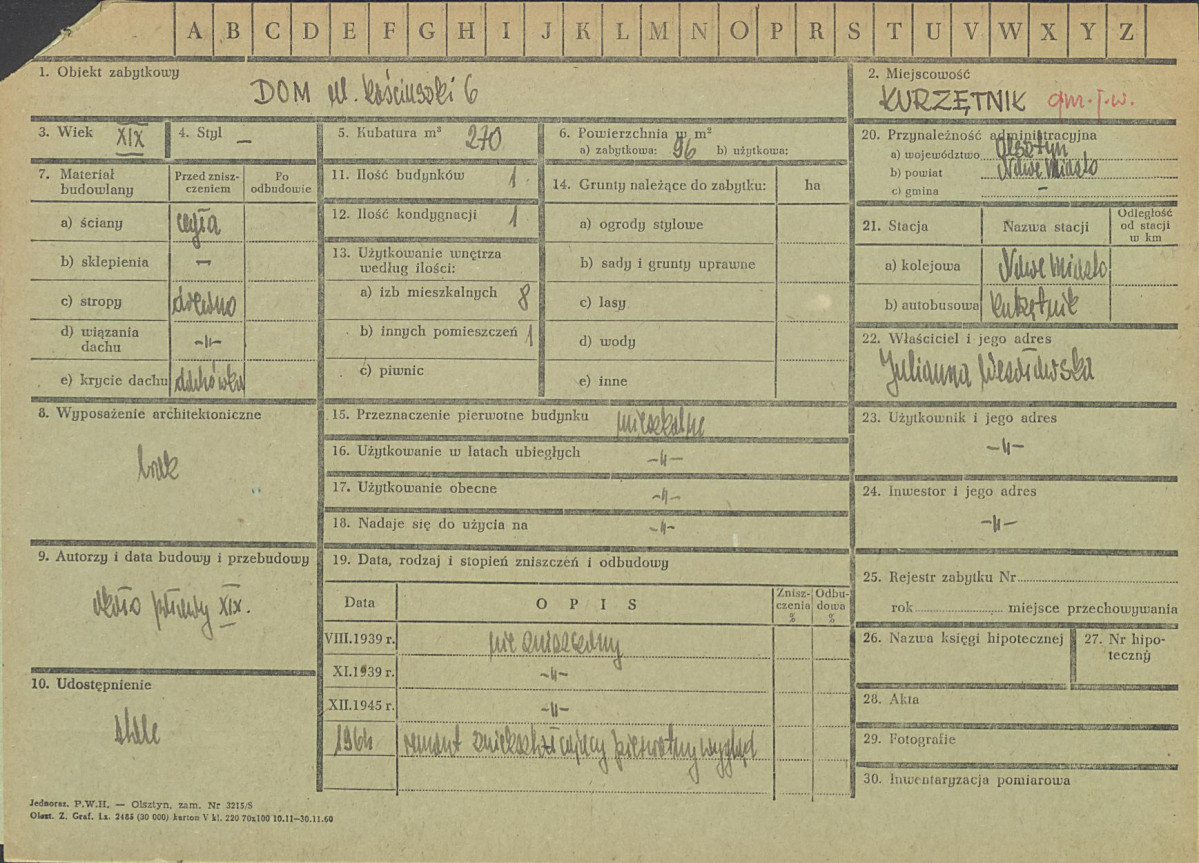 A B C D E F G H I J K L M N O P R S T U V W X Y Z
1. Obiekt zabytkowy
DOM ul. Kościuszki 6
2. Miejscowość
KURZĘTNIK gm. j. w.
3. Wiek XIX
4. Styl —
5. Kubatura m³ 270
6. Powierzchnia w m²
a) zabytkowa: 96 b) użytkowa:
7. Materiał budowlany
Przed zniszczeniem
Po odbudowie
a) ściany cegła
b) sklepienia —
c) stropy drewno
d) wiązania dachu -"-
e) krycie dachu dachówka
8. Wyposażenie architektoniczne
brak
9. Autorzy i data budowy i przebudowy
około połowy XIX.
10. Udostępnienie
stałe
11. Ilość budynków 1
12. Ilość kondygnacji 1
13. Użytkowanie wnętrza
według ilości:
a) izb mieszkalnych 8
b) innych pomieszczeń 1
c) piwnic
14. Grunty należące do zabytku: ha
a) ogrody stylowe
b) sady i grunty uprawne
c) lasy
d) wody
e) inne
15. Przeznaczenie pierwotne budynku mieszkalne
16. Użytkowanie w latach ubiegłych -"-
17. Użytkowanie obecne -"-
18. Nadaje się do użycia na -"-
19. Data, rodzaj i stopień zniszczeń i odbudowy
Data OPIS Zniszczenia % Odbudowa %
VIII.1939 r. nie zniszczony
XI.1939 r. -"-
XII.1945 r. -"-
1964 remont zniekształcający pierwotny wygląd
20. Przynależność administracyjna
a) województwo Olsztyn
b) powiat Nowe Miasto
c) gmina —
21. Stacja Nazwa stacji Odległość od stacji w km
a) kolejowa Nowe Miasto
b) autobusowa Kurzętnik
22. Właściciel i jego adres
Julianna Wesołowska
23. Użytkownik i jego adres
-"-
24. Inwestor i jego adres
-"-
25. Rejestr zabytku Nr
rok miejsce przechowywania
26. Nazwa księgi hipotecznej
27. Nr hipoteczny
28. Akta
29. Fotografie
30. Inwentaryzacja pomiarowa
Jednoraz. P.W.H. — Olsztyn, zam. Nr 3215/S
Olszt. Z. Graf. Lz. 2485 (30 000) karton V kl. 220 70x100 10.11—30.11.60